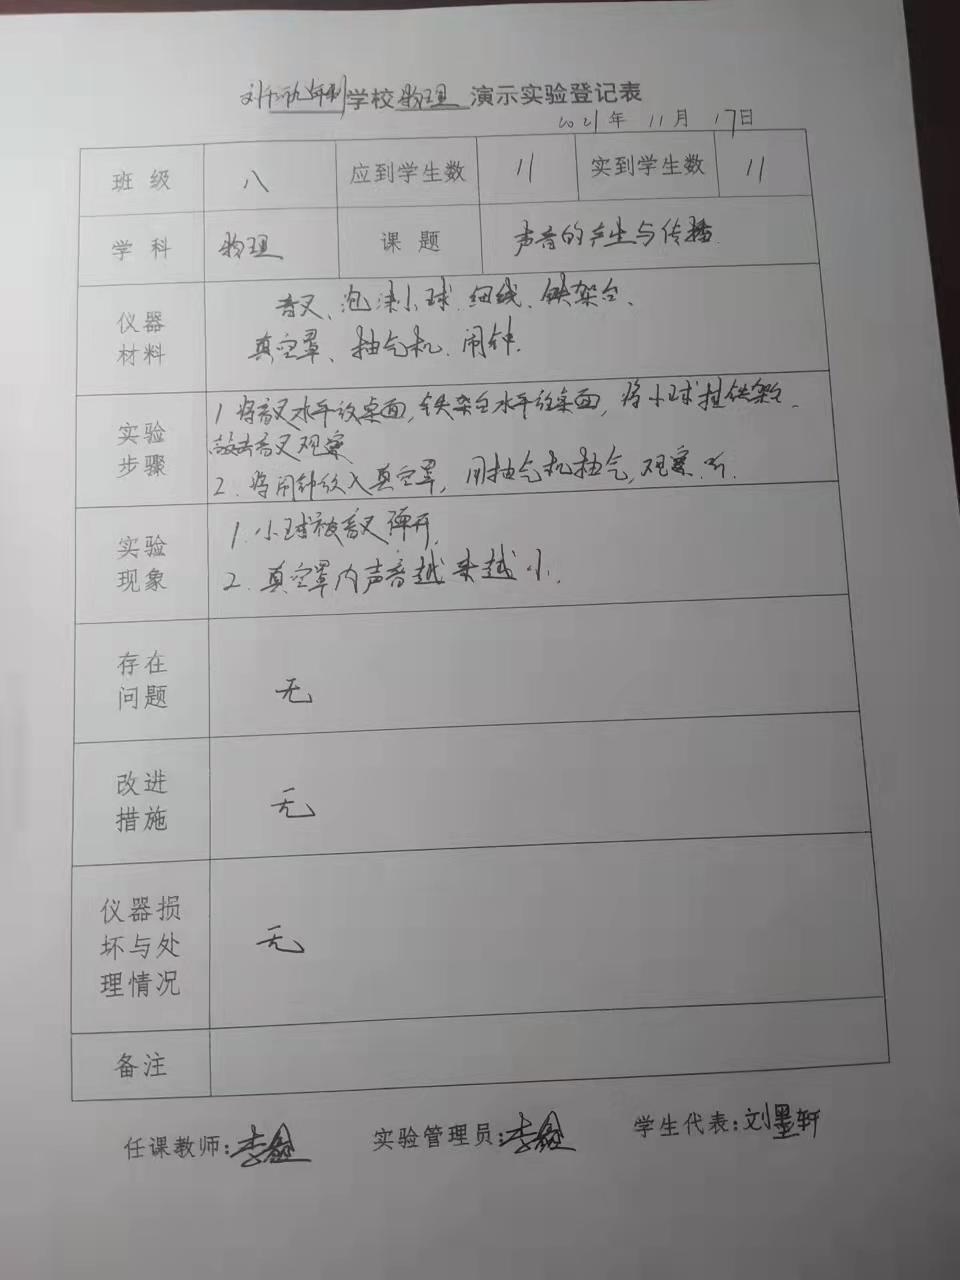 九年制学校物理演示实验登记表
2021年 11月 17日
班级 八 应到学生数 11 实到学生数 11
学科 物理 课题 声音的产生与传播
仪器材料
音叉、泡沫小球、细线、铁架台、
真空罩、抽气机、闹钟.
实验步骤
1 将音叉水平放桌面,铁架台水平放桌面,将小球挂铁架台.
敲击音叉观察
2. 将闹钟放入真空罩,用抽气机抽气,观察.听.
实验现象
1. 小球被音叉弹开.
2. 真空罩内声音越来越小.
存在问题
无
改进措施
无
仪器损坏与处理情况
无
备注
任课教师:李鑫 实验管理员:李鑫 学生代表:刘墨轩